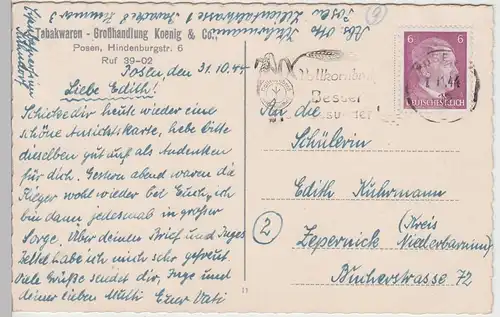 Abs. Otto Kuhrmann
Posen Lilienthalstrasse 1 Baracke 3 Zimmer 3
Tabakwaren - Großhandlung Koenig & Co.,
Posen, Hindenburgstr. 6
Ruf 39-02
Posen, den 31.10.44
Liebe Edith!
Schicke dir heute wieder eine
schöne Ansichtskarte, hebe bitte
dieselben gut auf als Andenken
für dich. Gestern abend waren die
Flieger wohl wieder bei Euch, ich
bin dann jedesmal in großer
Sorge. Über deinen Brief und Inges
Zettel habe ich mich sehr gefreut.
Viele Grüße sendet dir, Inge und
deiner lieben Mutti Euer Vati
6 6
DEUTSCHES REICH
Vollkornbrot
Besser
POSEN
44
An die
Schülerin
Edith Kuhrmann
2
Zepernick (Kreis
Niederbarnim)
Bucherstrasse 72